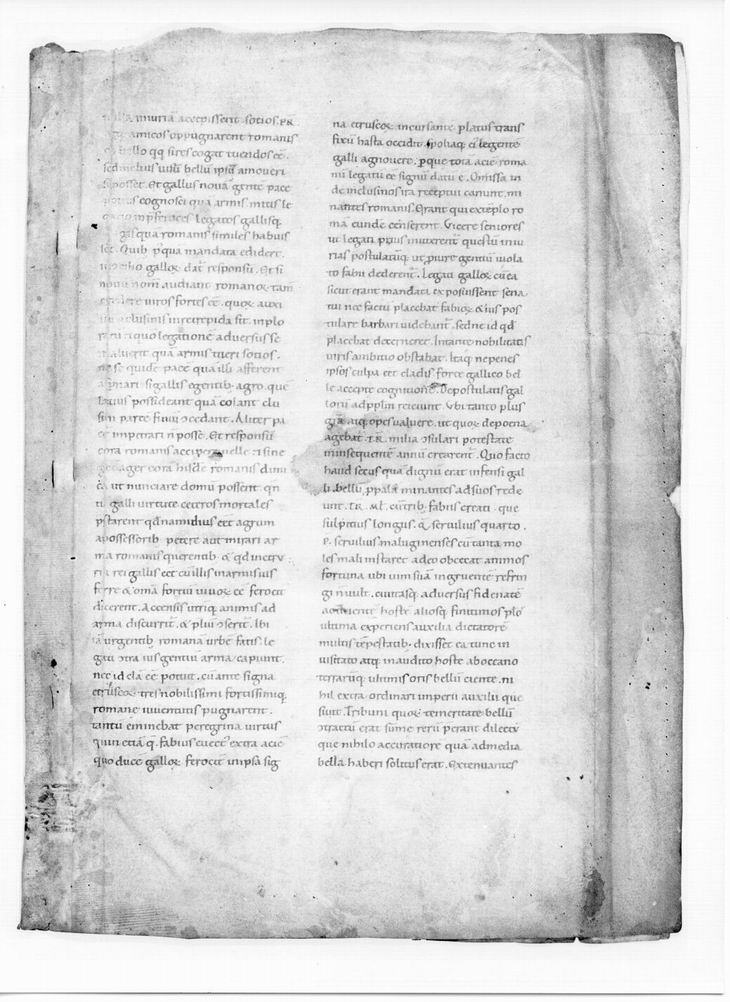 iniuriā accepissent sotios. P̅R̅
amicos oppugnarent romanis
bello qq sires cogat tuendos eē.
sed melius uisū bellū ipsū amoueri
si posset. Et gallos nouā gentē pace
potius cognosci quā armis mitis le
legatos gallisq
quā romanis similes habuis
set. Quib p̄quā mandata edidert.
gallox dat̄ responsū. Et si
nouū nom̄ audiant romanox tam̄
uiros fortes eē. quox auxi
clusinis intrepida sit inplo
ratū. & quo legationē aduersus se
maluerit quā armis tueri sotios.
ne se quidē pacē quā illi afferent
aspnari. si gallis egentib. agro. quē
latius possideant quā colant clu
sini partē finiū ↄcedant. Aliter pa
cē impetrari n̄ posse. Et responsū
corā romanis accipere uelle. & si ne
get ager corā hisdē romanis dimi
ut nunciare domū possent. qn̄
tū galli uirtute ceteros mortales
p̄starent qd̄ nam id ius eēt agrum
a possessorib. petere aut mirari ar
ma romanis querentib. & qd̄ in etru
ria rei gallis eēt cū illis in armis ius
ferre & om̄a fortiū uirox eē ferocit̄
dicerent. Accensis utriq, animis ad
arma discurrit̄. & p̄liū ↄserit̄. Ibi
iā urgentib. romanā urbē fatis. le
gati ↄtra ius gentiū arma capiunt.
nec id clā eē potuit. cū ante signa
etruscox tres nobilissimi fortissimiq,
romane iuuentutis pugnarent.
tantū eminebat peregrina uirtus
quin etiā q. fabius euectꝰ extra aciē
equo ducē gallox ferocit̄ in ipsā sig
na etruscox incursantē p latus trans
fixū hasta occidit. spoliaq, ei legentē
galli agnouere. p̄que totā aciē roma
nū legatū eē signū datū ē. Omissa in
de in clusinos ira receptui canunt. mi
nantes romanis. Erant qui extēplo ro
mā eundē censerent. Vicere seniores
ut legati prius mitterent̄ questū iniu
rias postulatūq, ut p iure gentiū uiola
to fabii dederent̄. Legati gallox cū ea
sicut erant mandata exposuissent sena
tui nec factū placebat fabiox & ius pos
tulare barbari uidebant̄. sed ne id qd̄
placebat decerneret̄. In tante nobilitatis
uiris ambitio obstabat. Itaq, ne penes
ipsos culpa eēt cladis forte gallico bel
lo accepte cognitionē. De postulatis gal
lorū ad pp̄lm reiciunt. Vbi tanto plus
grā atq, opes ualuere. ut quox de poena
agebat̄. t̄r̄. milit̄ ↄsulari potestate
in insequentē annū crearent̄. Quo facto
haud secus quā dignū erat infensi gal
li. bellū ppalā minantes ad suos rede
unt. t̄r̄. m̄l̄. cū trib. fabiis creati. que
sulpitius longus. q. seruilius quarto.
P. seruilius maluginenses cū tanta mo
les mali instaret adeo obcecat animos
fortuna ubi uim suā ingruentē refrin
gi n̄ uult. ciuitasq, aduersus fidenatē
ac uientē hostē aliosq, finitimos p̄lo
ultima experiens auxilia dictatorē
multis tēpestatib. dixisset ea tunc in
uisitato atq, inaudito hoste ab oceano
terrarūq, ultimis oris bellū ciente. ni
hil extra ordinari imperii auxilii que
siuit. Tribuni quox temeritate bellū
ↄtractū erat sūme rerū perant dilectū
que nihilo accuratiorē quā ad media
bella haberi solitus erat. Extenuantes